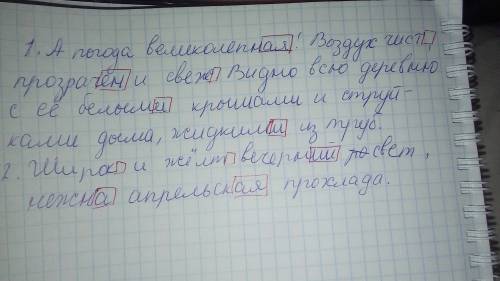 1. А погода великолепная! Воздух чист
прозрачен и свеж Видно всю деревню
с её белыми крышами и струй-
ками дыма, жидкими из труб.
2. Широк и жёлт вечерний свет,
нежна апрельская прохлада.